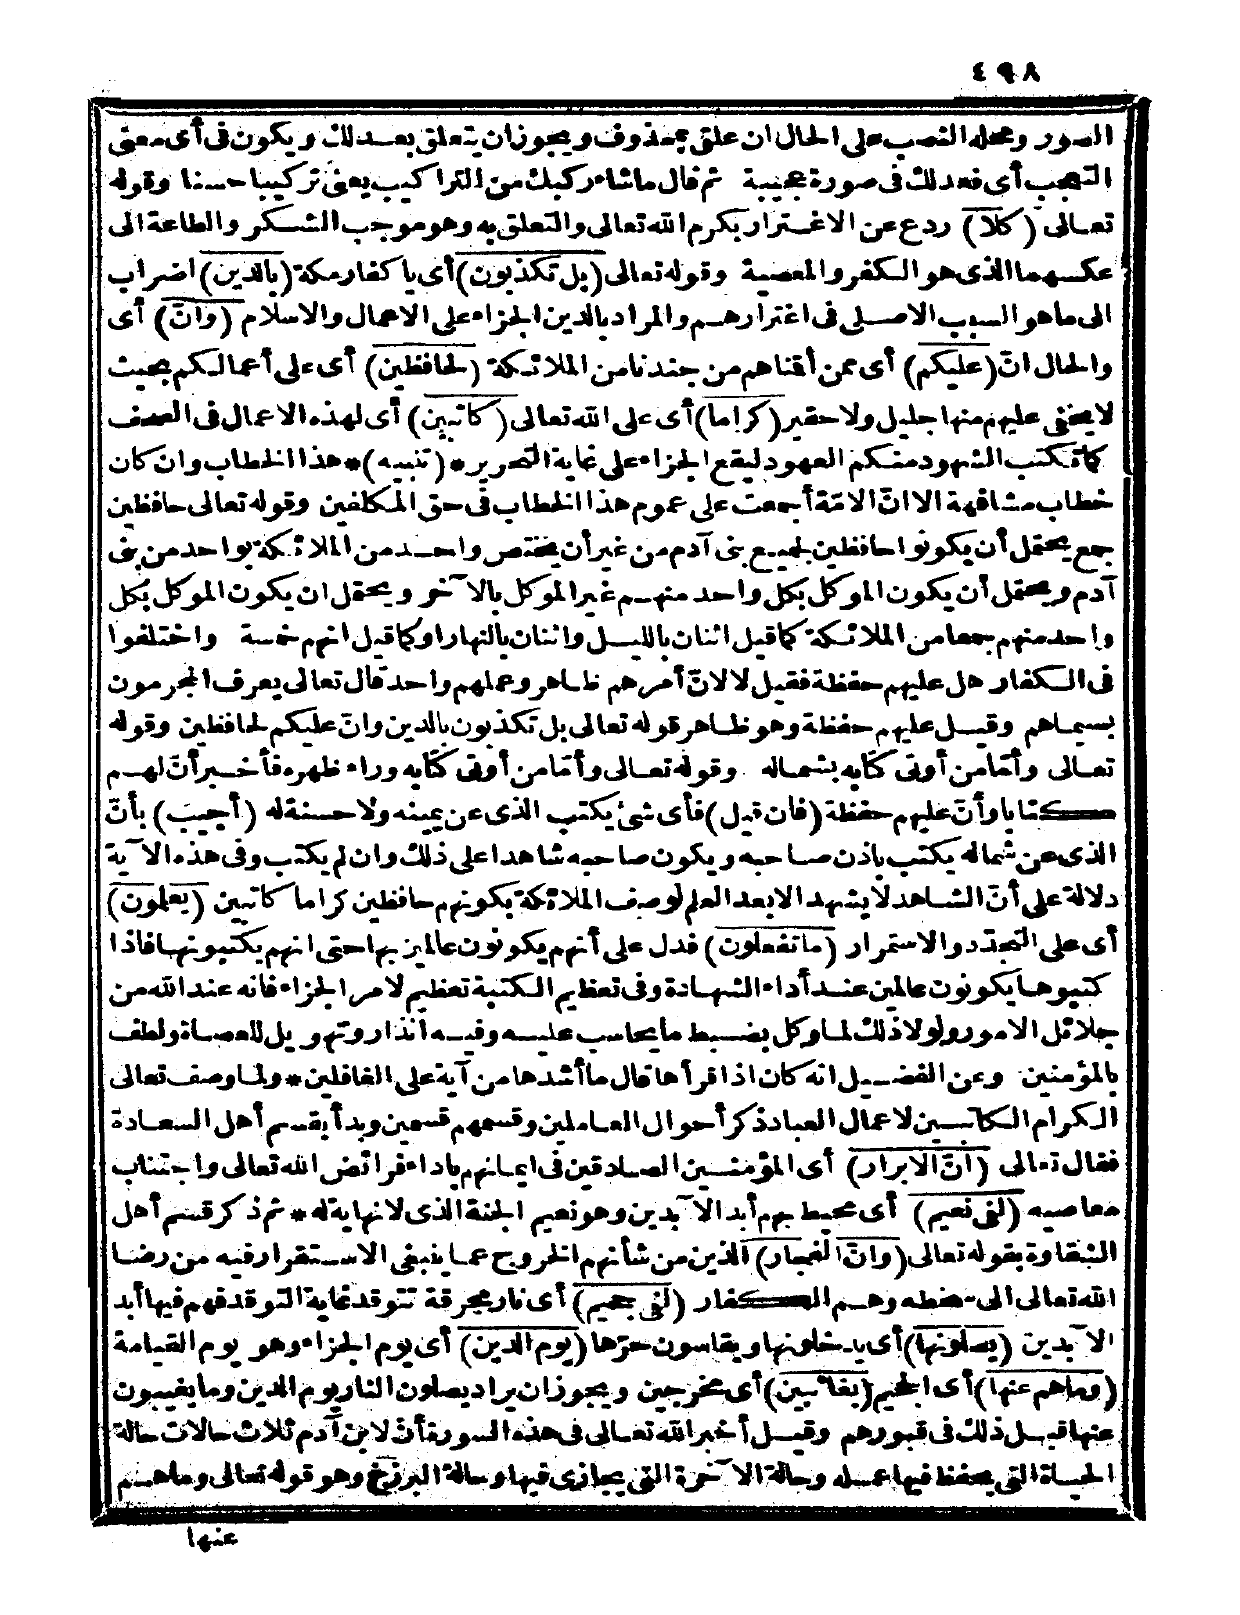 ٤٩٨
الصور ومحله النصب على الحال ان علق بمحذوف ويجوز ان يتعلق بعدلك ويكون فى أى معنى
التعجب أى فعدلك فى صورة عجيبة ثم قال ماشاء ركبك من التراكيب يعنى تركيبا حسنا وقوله
تعالى (كلا) ردع عن الاغترار بكرم الله تعالى والتعلق به وهو موجب الشكر والطاعة الى
عكسهما الذى هو الكفر والمعصية وقوله تعالى (بل تكذبون) أى يا كفار مكة (بالدين) اضراب
الى ما هو السبب الاصلى فى اغترارهم والمراد بالدين الجزاء على الاعمال والاسلام (وانّ) أى
والحال انّ (عليكم) أى ممن أقناهم من جندنا من الملائكة (لحافظين) أى على أعمالكم بحيث
لا يخفى عليهم منها جليل ولا حقير (كراما) أى على الله تعالى (كاتبين) أى لهذه الاعمال فى الصحف
كما تكتب الشهود منكم العهود ليقع الجزاء على غاية التحرير * (تنبيه) * هذا الخطاب وان كان
خطاب مشافهة الا انّ الامّة أجمعت على عموم هذا الخطاب فى حق المكلفين وقوله تعالى حافظين
جمع يحتمل أن يكونوا حافظين لجميع بنى آدم من غير أن يختص واحد من الملائكة بواحد من بنى
آدم ويحتمل أن يكون الموكل بكل واحد منهم غير الموكل بالآخر ويحتمل ان يكون الموكل بكل
واحد منهم جمعا من الملائكة كما قيل اثنان بالليل واثنان بالنهار أو كما قيل انهم خمسة واختلفوا
فى الكفار هل عليهم حفظة فقيل لا لانّ أمرهم ظاهر وعملهم واحد قال تعالى يعرف المجرمون
بسيماهم وقيل عليهم حفظة وهو ظاهر قوله تعالى بل تكذبون بالدين وانّ عليكم لحافظين وقوله
تعالى وأمّا من أوتى كتابه بشماله وقوله تعالى وأمّا من أوتى كتابه وراء ظهره فأخبر أنّ لهم
كتابا وأنّ عليهم حفظة (فان قيل) فأى شئ يكتب الذى عن يمينه ولا حسنة له (أجيب) بأنّ
الذى عن شماله يكتب باذن صاحبه ويكون صاحبه شاهدا على ذلك وان لم يكتب وفى هذه الآية
دلالة على أنّ الشاهد لا يشهد الا بعد العلم لوصف الملائكة بكونهم حافظين كراما كاتبين (يعلمون)
أى على التجدّد والاستمرار (ما تفعلون) فدل على أنهم يكونون عالمين بها حتى انهم يكتبونها فاذا
كتبوها يكونون عالمين عند أداء الشهادة وفى تعظيم الكتبة تعظيم لامر الجزاء فانه عند الله من
جلائل الامور ولولا ذلك لما وكل بضبط ما يحاسب عليه وفيه انذار وتهويل للعصاة ولطف
بالمؤمنين وعن الفضيل انه كان اذا قرأها قال ما أشدها من آية على الغافلين * ولما وصف تعالى
الكرام الكاتبين لاعمال العباد ذكر أحوال العاملين وقسمهم قسمين وبدأ بقسم أهل السعادة
فقال تعالى (انّ الابرار) أى المؤمنين الصادقين فى ايمانهم باداء فرائض الله تعالى واجتناب
معاصيه (لفى نعيم) أى محيط بهم أبد الآبدين وهو نعيم الجنة الذى لا نهاية له * ثم ذكر قسم أهل
الشقاوة بقوله تعالى (وانّ الفجار) الذين من شأنهم الخروج عما ينبغى الاستقرار فيه من رضا
الله تعالى الى سخطه وهم الكفار (لفى جحيم) أى نار محرقة تتوقد غاية التوقد فهم فيها أبد
الآبدين (يصلونها) أى يدخلونها ويقاسون حرّها (يوم الدين) أى يوم الجزاء وهو يوم القيامة
(وما هم عنها) أى الجحيم (بغائبين) أى مخرجين ويجوز ان يراد يصلون النار يوم الدين وما يغيبون
عنها قبل ذلك فى قبورهم وقيل أخبر الله تعالى فى هذه السورة أن لابن آدم ثلاث حالات حالة
الحياة التى يحفظ فيها عمله وحالة الآخرة التى يجازى فيها وحالة البرزخ وهو قوله تعالى وما هم
عنها